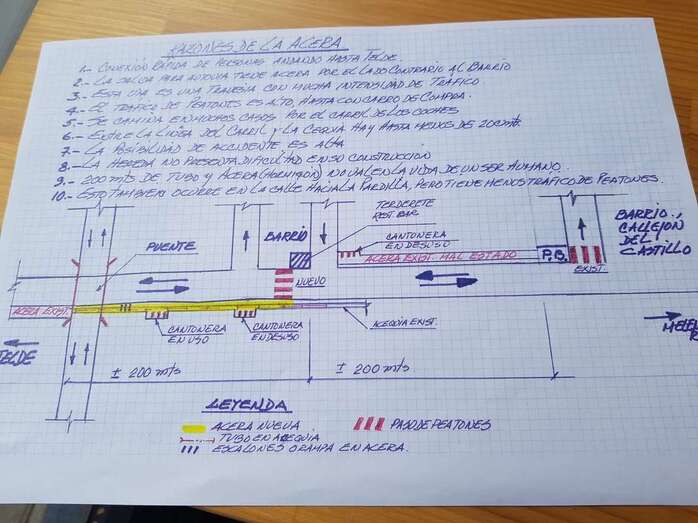 RAZONES DE LA ACERA
1.- CONEXIÓN RÁPIDA DE PERSONAS ANDANDO HASTA TELDE.
2.- LA SALIDA PARA AUTOVIA TIENE ACERA POR EL LADO CONTRARIO AL BARRIO
3.- ESTA VIA ES UNA TRAVESIA CON MUCHA INTENSIDAD DE TRÁFICO.
4.- EL TRAFICO DE PEATONES ES ALTO, HASTA CON CARRO DE COMPRA.
5.- SE CAMINA EN MUCHOS CASOS POR EL CARRIL DE LOS COCHES
6.- ENTRE LA LINEA DEL CARRIL Y LA CERCA HAY HASTA MENOS DE 20 CMts.
7.- LA POSIBILIDAD DE ACCIDENTE ES ALTA
8.- LA NO PRESENTA DIFICULTAD EN SU CONSTRUCCION
9.- 200 mts DE TUBO Y ACERA (HORMIGON) NO VALEN LA VIDA DE UN SER HUMANO.
10.- ESTO TAMBIEN OCURRE EN LA CALLE HACIA LA PARDILLA, PERO TIENE MENOS TRÁFICO DE PEATONES.
TERDERETE
REST. BAR
BARRIO
PUENTE
CANTONERA
EN DESUSO
BARRIO
CALLEJON
DEL
CASTILLO
ACERA EXIST. MAL ESTADO
P.B.
EXIST.
NUEVO
ACERA EXIST.
CANTONERA
EN USO
CANTONERA
EN DESUSO
ACEQUIA EXIST.
TELDE
± 200 mts
± 200 mts
LEYENDA
ACERA NUEVA
PASO DE PEATONES
TUBO EN ACEQUIA
ESCALONES O RAMPA EN ACERA.